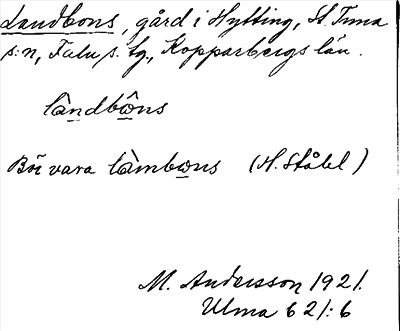 Landbons, gård i Hytting, St. Tuna
s:n, Falu s. tg., Kopparbergs län.
làndbôns
Bör vara làmbons (H. Ståhl)
M. Andersson 1921.
Ulma 621:6